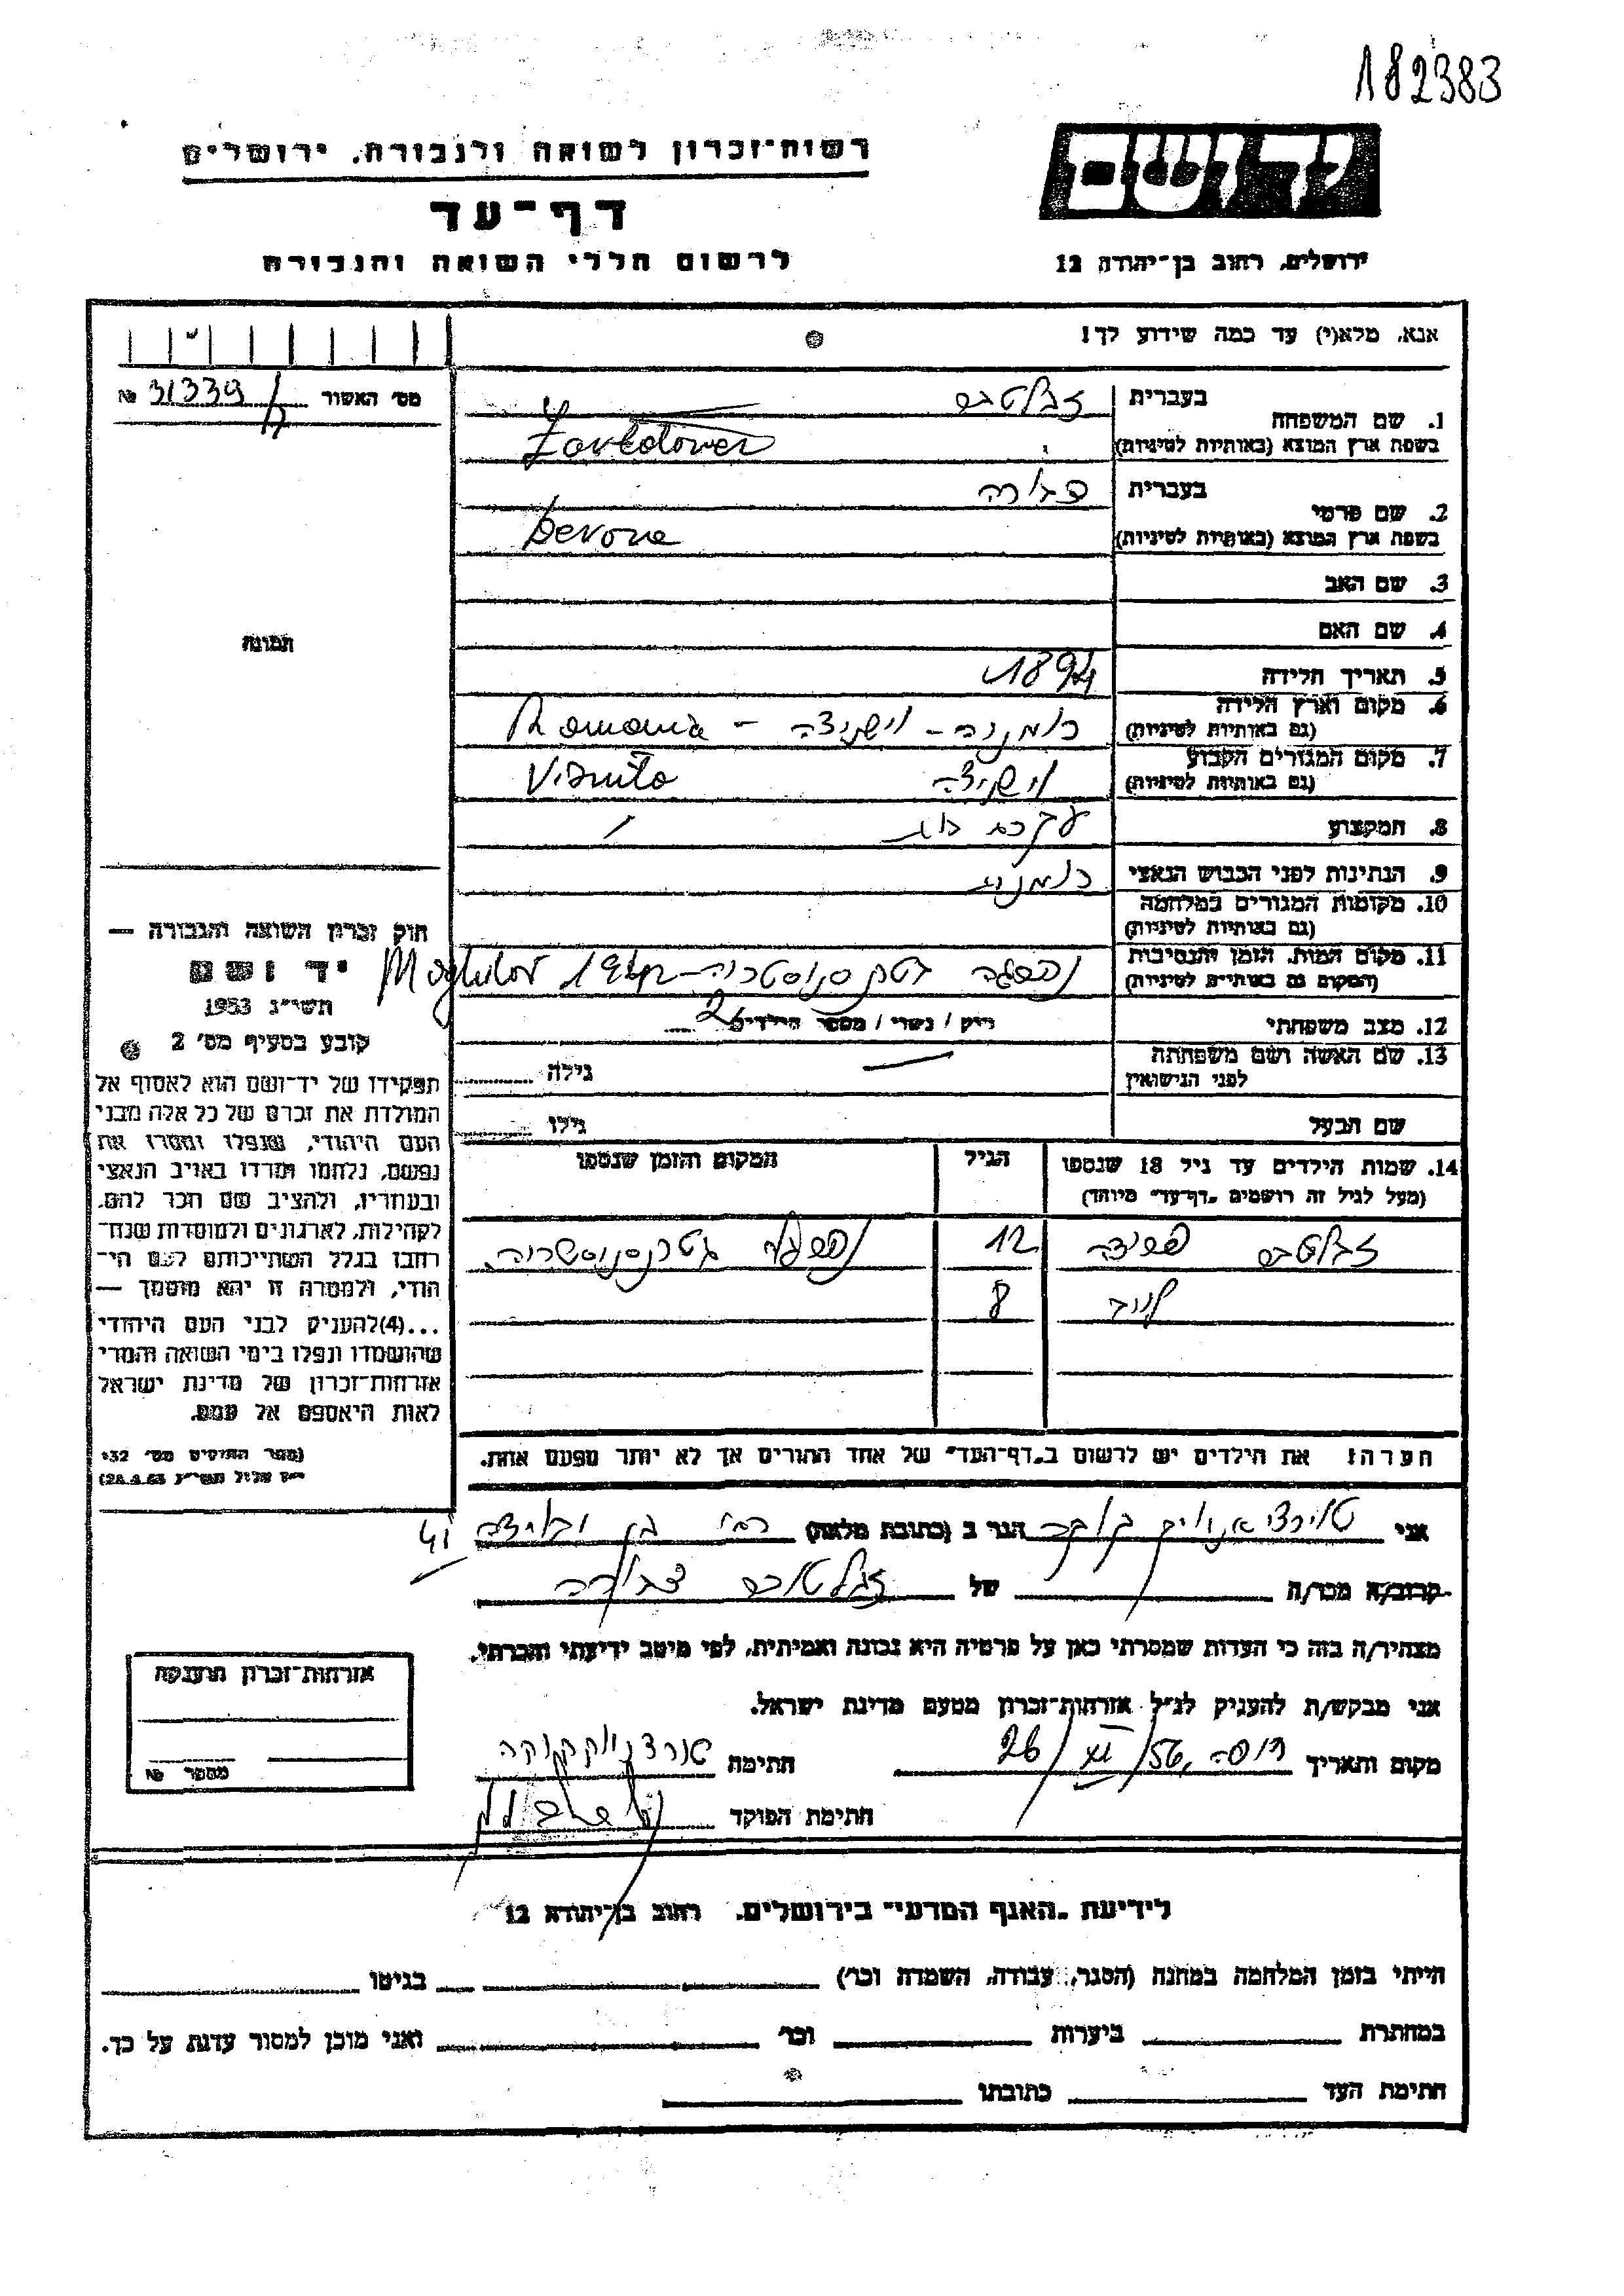 182383
רשות-זכרון לשואה ולגבורה, ירושלים
יד ושם
דף-עד
לרשום חללי השואה והגבורה
ירושלים, רחוב בן-יהודה 12
אנא, מלא(י) עד כמה שידוע לך!
מס׳ האשור 31339 №
1. שם המשפחה
בעברית
בשפת ארץ המוצא (באותיות לטיניות)
2. שם פרטי
בעברית דבורה
בשפת ארץ המוצא (באותיות לטיניות)
3. שם האב
4. שם האם
תמונה
5. תאריך הלידה 1894
6. מקום וארץ הלידה
(גם באותיות לטיניות) רומניה - וישניצה - Romania
7. מקום המגורים הקבוע
(גם באותיות לטיניות) וישניצה Visnita
8. המקצוע עקרת בית
9. הנתינות לפני הכבוש הנאצי רומנית
10. מקומות המגורים במלחמה
(גם באותיות לטיניות)
11. מקום המות, הזמן והנסיבות
(המקום גם באותיות לטיניות) נספתה בטרנסניסטריה - Moghilov
12. מצב משפחתי רווק / נשוי / מספר הילדים 2
13. שם האשה ושם משפחתה
לפני הנישואין גילה
שם הבעל גילו
14. שמות הילדים עד גיל 18 שנספו
(מעל לגיל זה רושמים "דף-עד" מיוחד)
הגיל
המקום והזמן שנספו
12 נספתה בטרנסניסטריה
8
הערה! את הילדים יש לרשום ב"דף-העד" של אחד ההורים אך לא יותר מפעם אחת.
חוק זכרון השואה והגבורה —
יד ושם
תשי״ג 1953
קובע בסעיף מס׳ 2
תפקידו של יד-ושם הוא לאסוף אל
המולדת את זכרם של כל אלה מבני
העם היהודי, שנפלו ומסרו את
נפשם, נלחמו ומרדו באויב הנאצי
ובעוזריו, ולהציב שם וזכר להם,
לקהילות, לארגונים ולמוסדות שנח־
רבו בגלל השתייכותם לעם הי־
הודי, ולמטרה זו יהא מוסמך —
...(4)להעניק לבני העם היהודי
שהושמדו ונפלו בימי השואה והמרי
אזרחות-זכרון של מדינת ישראל
לאות היאספם אל עמם.
(ספר החוקים מס׳ 132
י״ז אלול תשי״ג 28.8.53)
אני הגר ב (כתובת מלאה) 41
קרוב/ה מכר/ה של דבורה
מצהיר/ה בזה כי העדות שמסרתי כאן על פרטיה היא נכונה ואמיתית, לפי מיטב ידיעתי והכרתי.
אני מבקש/ת להעניק לנ״ל אזרחות-זכרון מטעם מדינת ישראל.
מקום ותאריך חיפה, 26/XI/56 חתימה
חתימת הפוקד
אזרחות-זכרון הוענקה
מספר №
לידיעת "האגף המדעי" בירושלים, רחוב בן-יהודה 12
הייתי בזמן המלחמה במחנה (הסגר, עבודה, השמדה וכו׳) בגיטו
במחתרת ביערות וכו׳ ואני מוכן למסור עדות על כך.
חתימת העד כתובתו